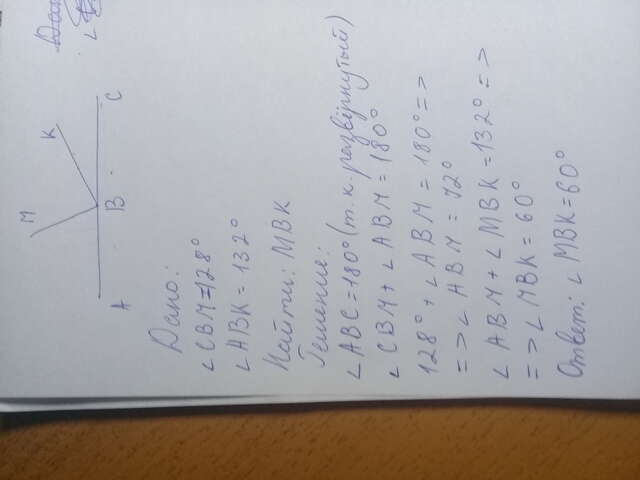 M
K
A B C
Дано:
∠CBM=128°
∠ABK = 132°
Найти: MBK
Решение:
∠ABC=180° (т.к. развёрнутый)
∠CBM + ∠ABM = 180°
128° + ∠ABM = 180° =>
=> ∠ABM = 72°
∠ABM + ∠MBK = 132° =>
=> ∠MBK = 60°
Ответ: ∠MBK = 60°